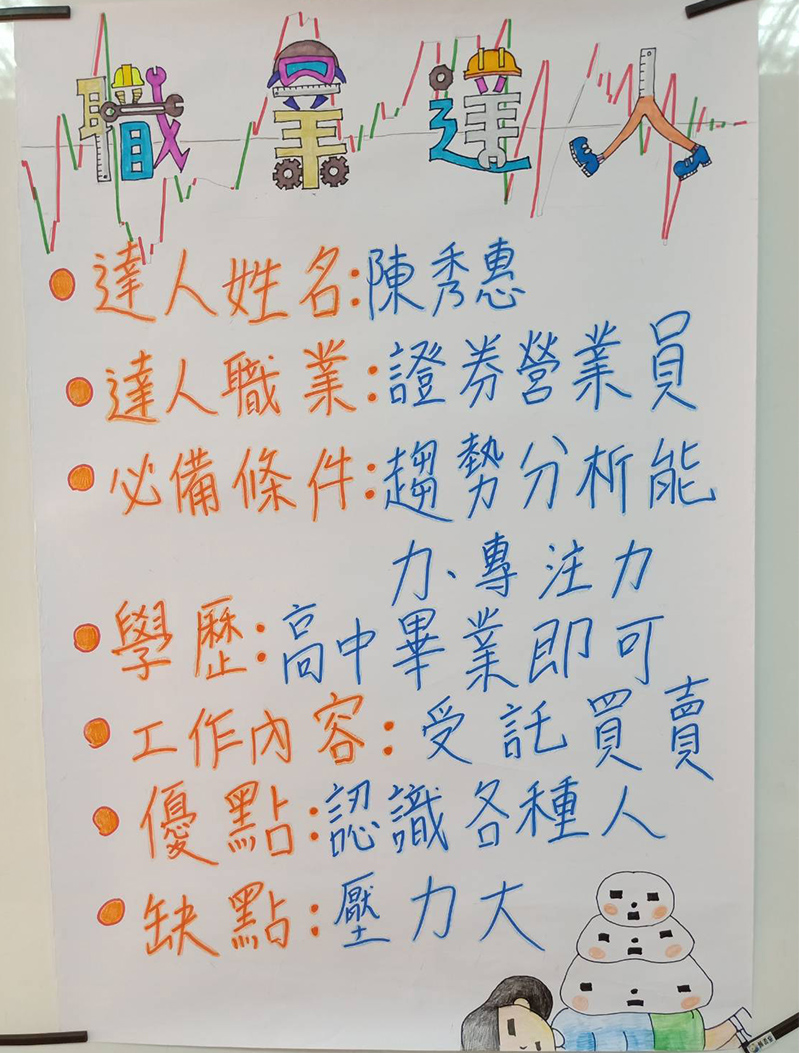 職業達人
達人姓名:陳秀惠
達人職業:證券營業員
必備條件:趨勢分析能
力、專注力
學歷:高中畢業即可
工作內容:受託買賣
優點:認識各種人
缺點:壓力大